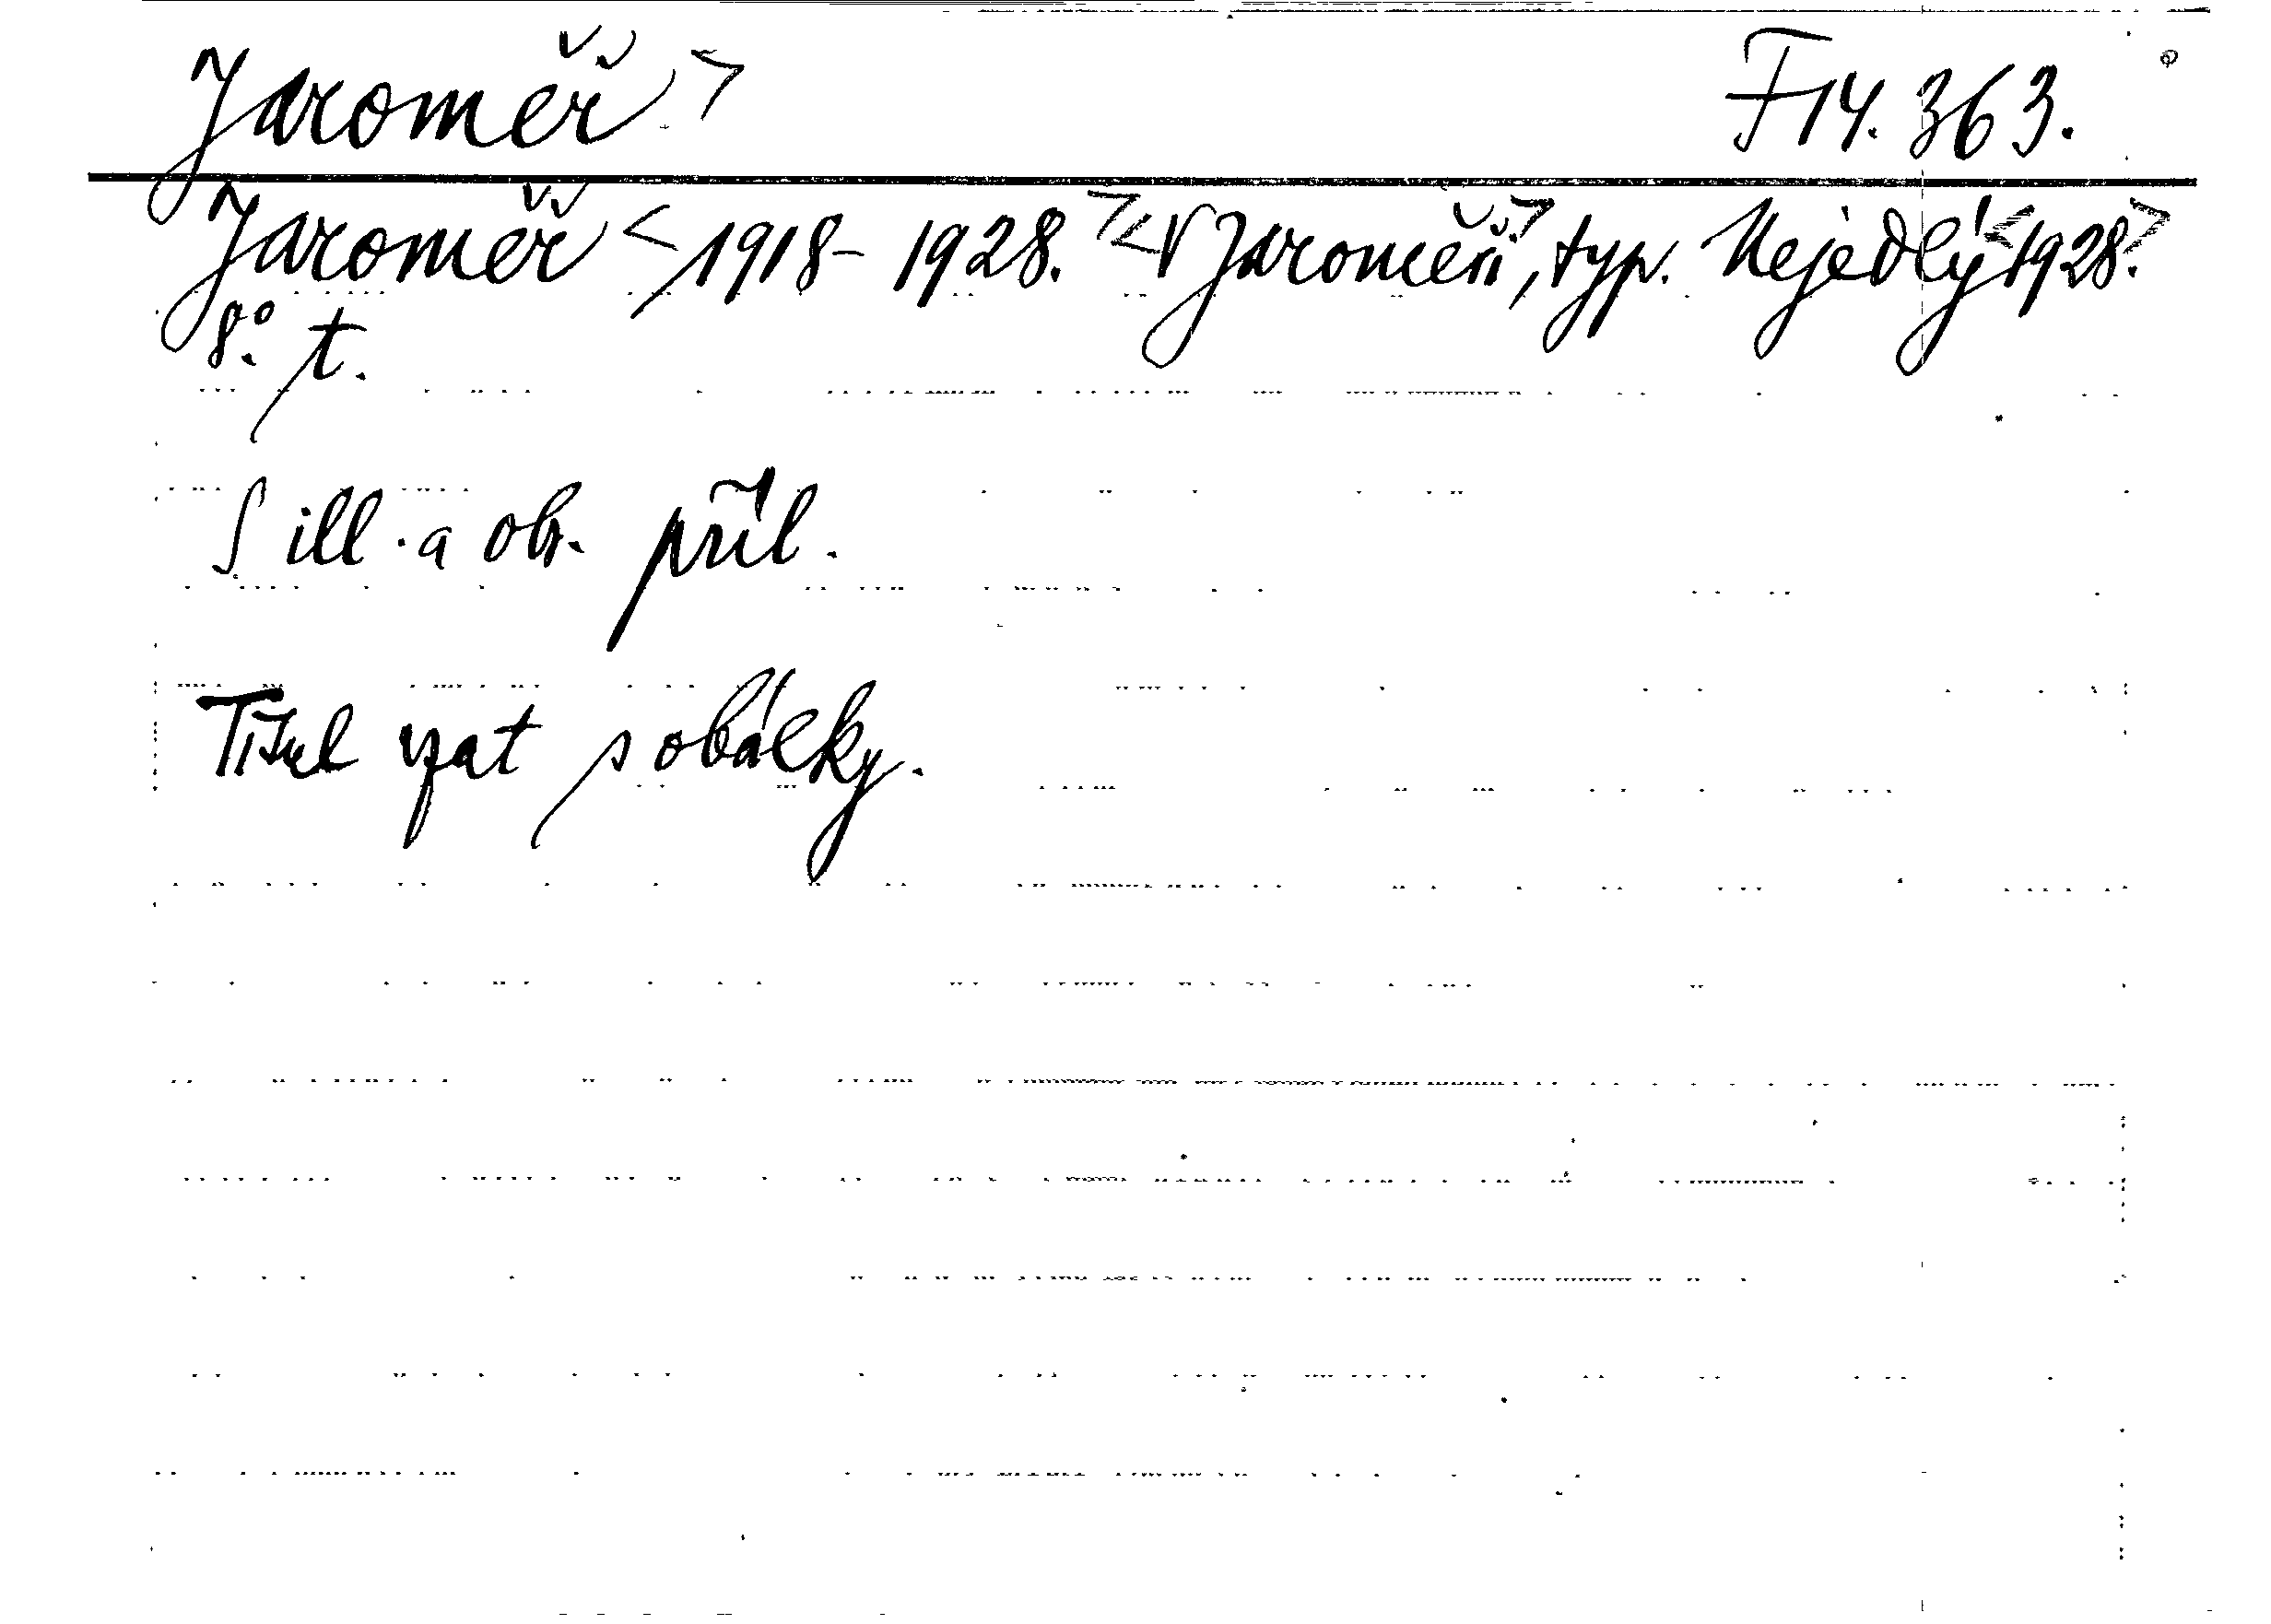 Jaroměř.> F 14. 363.
Jaroměř <1918-1928.> <V Jaroměři,> typ. Nejedlý <1928.>
8°. t.
S ill. a obr. příl.
Titul vzat s obálky.